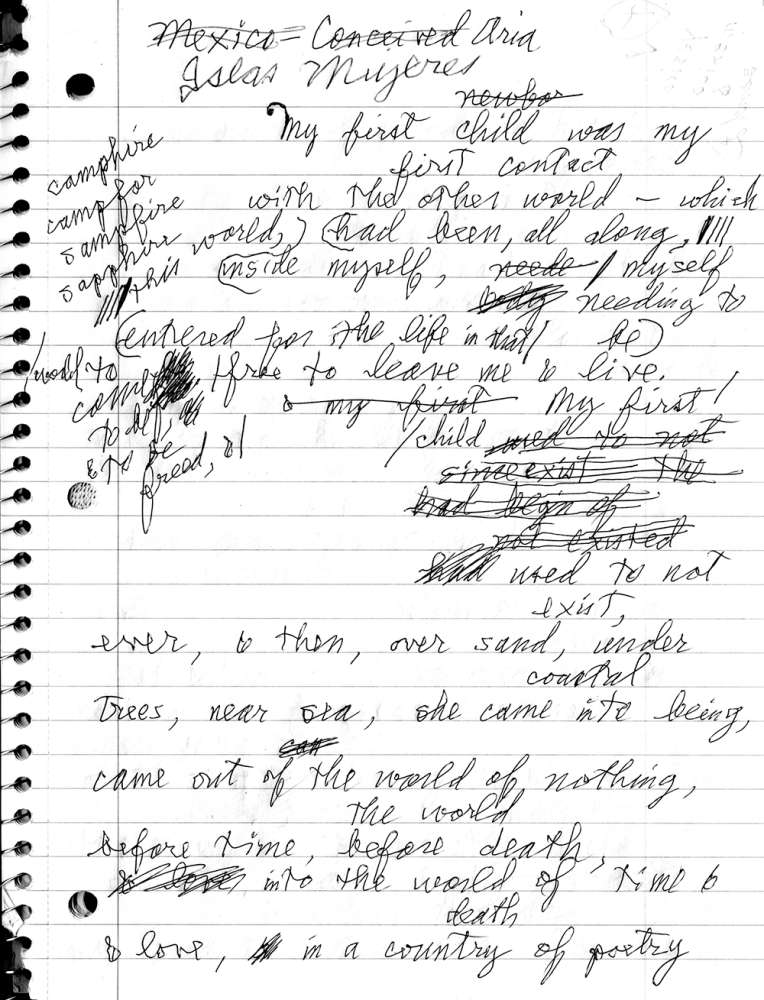 Mexico - Conceived Aria
Islas Mujeres
newbor
My first child was my
first contact
camphire
camp for
samphire
sapphire
with the other world – which
world,) (had been, all along,
this inside myself, neede / myself
body needing to
(entered for the life in that / be)
/ world to / free to leave me & live.
come
to be,
& to be
freed, &/
& my first My first /
/ child used to not
since exist the
had begin of
not existed
had used to not
exist,
ever, & then, over sand, under
coastal
trees, near sea, she came into being,
came out of the world of nothing,
the world
before time, before death,
into the world of time &
death
& love, in a country of poetry